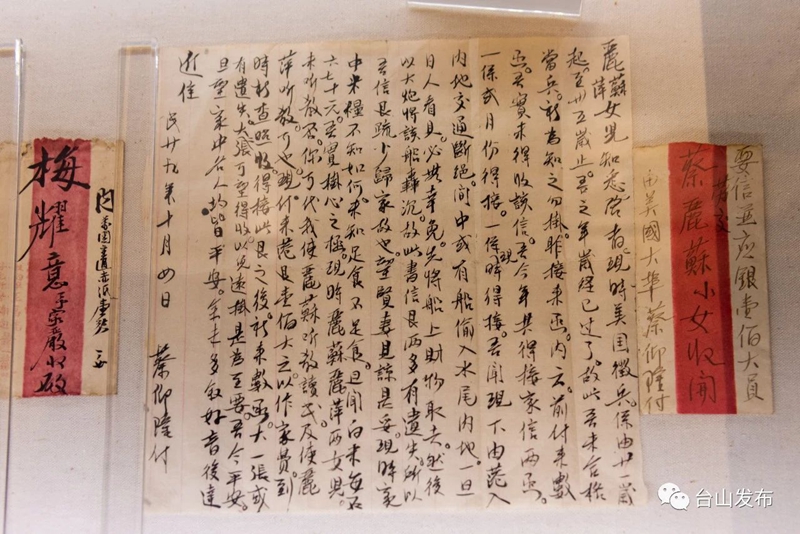 要信並 銀壹佰大員
蔡麗蘇小女收聞
美國大埠 蔡仰隆付
麗蘇
萍女見知悉啓者現時美国徵兵係由廿一歲
起至卅五歲止吾之年歲經已过了故此吾未合格
當兵祈為知之勿掛昨接來函內云前付來數
函吾實未得收該信吾今年共得接家信两函
一係弍月份得接一係現時得接吾聞現下由 入
內地交通斷絕间中或有船偷入水尾內地一旦
日人看見必無幸免先將船上財物取去然後
以大炮將該船轟沉故此書信艮两多有遺失所以
吾信艮疏少歸家故也望賢妻見諒是妥現時家
中米糧不知如何未知足食不足食旦聞白米每石
六七十元吾實掛心之極現時麗蘇麗萍两女見
未听教否你可代我使麗蘇听教讀 及使麗
萍听教可也現付來 艮壹佰大元以作家費到
時祈查照收得接此艮之後祈來數函大一張或
有遺失大張可望得收以免遠掛是為至要吾今平安
旦望家中各人均皆平安 未多敘好音後達
近佳
民廿九年十月四日 蔡仰隆付
內
梅耀意 家嚴收啟
台山发布